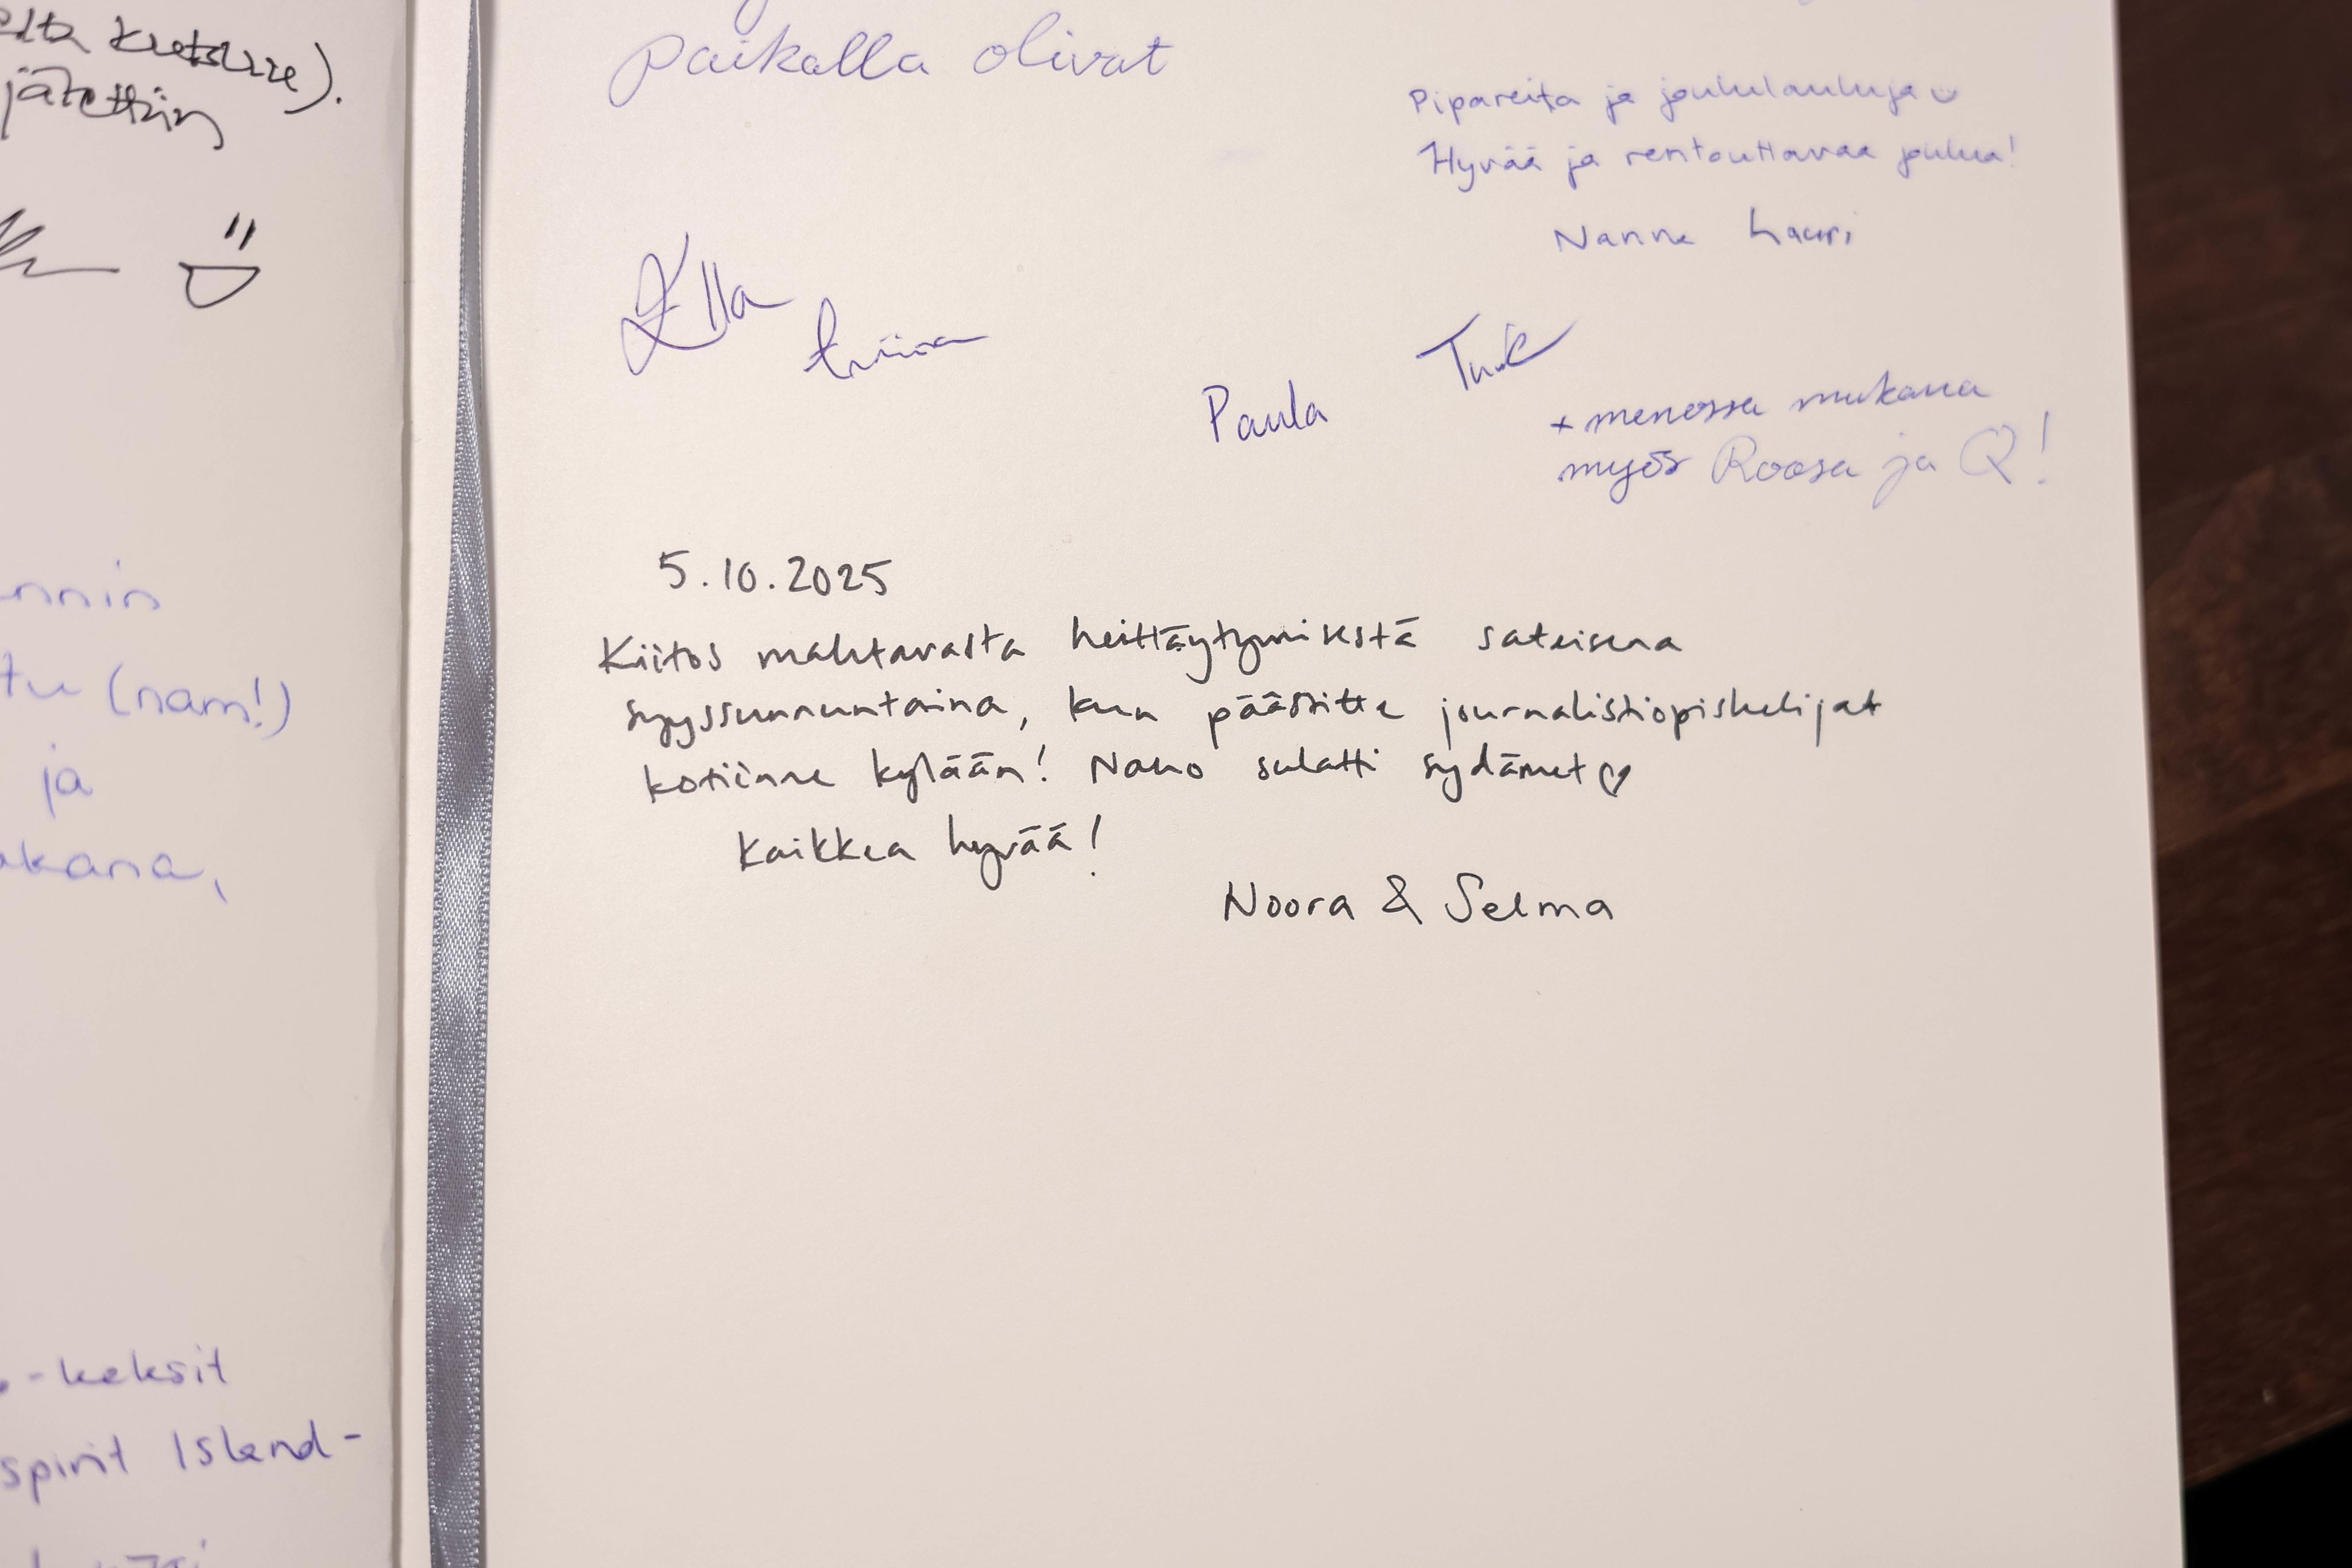 kutsuure).
jätettiin
nnin
tu (nam!)
ja
akana,
-keksit
spirit Island-
paikalla olivat
Pipareita ja joululauluja
Hyvää ja rentouttavaa joulua!
Nanna Lauri
Ella
Paula
+ menossa mukana
myös Roosa ja Q!
5.10.2025
Kiitos mahtavasta heittäytymisestä sateisena
syyssunnuntaina, kun päästitte journalistiopiskelijat
kotiinne kylään! Nano sulatti sydämet♡
Kaikkea hyvää!
Noora & Selma